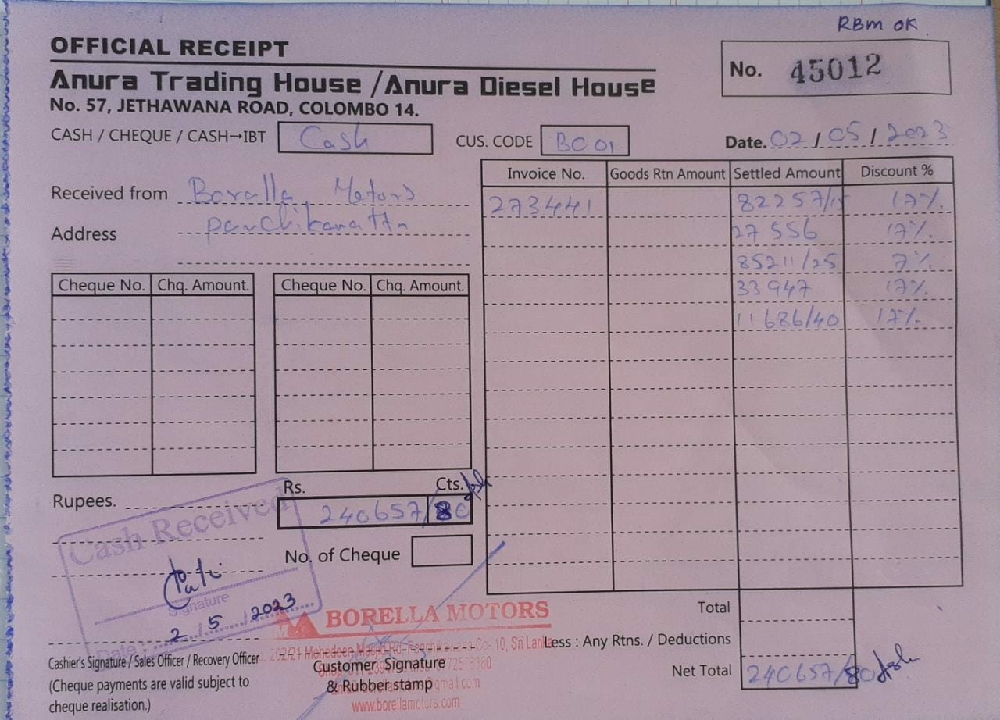 RBM OK
OFFICIAL RECEIPT
Anura Trading House /Anura Diesel House
No. 57, JETHAWANA ROAD, COLOMBO 14.
No. 45012
CASH / CHEQUE / CASH→IBT Cash CUS. CODE BC 01 Date. 02 / 05 / 2023
Received from Boralla Motors
Address
Invoice No. Goods Rtn Amount Settled Amount Discount %
273441 82257/15 17%
27 556 17%
85211/25 7%
33 947 17%
11686/40 17%
Cheque No. Chq. Amount Cheque No. Chq. Amount
Rupees. Rs. Cts.
240657/80
No. of Cheque
Cash Received
Signature
Date 2 . 5 . 2023
BORELLA MOTORS
10, Sri Lanka
www.borellamotors.com
Cashier's Signature / Sales Officer / Recovery Officer
(Cheque payments are valid subject to
cheque realisation.)
Customer Signature
& Rubber stamp
Total
Less : Any Rtns. / Deductions
Net Total 240657/80